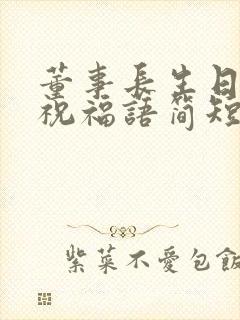 董事長生日
祝福語簡短
紫菜不愛包飯